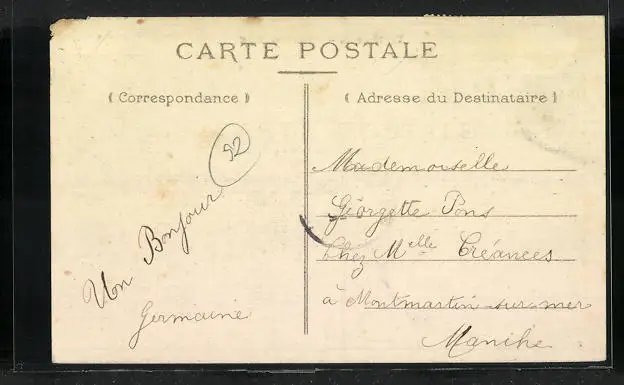 CARTE POSTALE
( Correspondance )
( Adresse du Destinataire )
92
Un Bonjour
Germaine
Mademoiselle
Géorgette Pons
Chez Melle Créances
à Montmartin-sur-mer
Manche